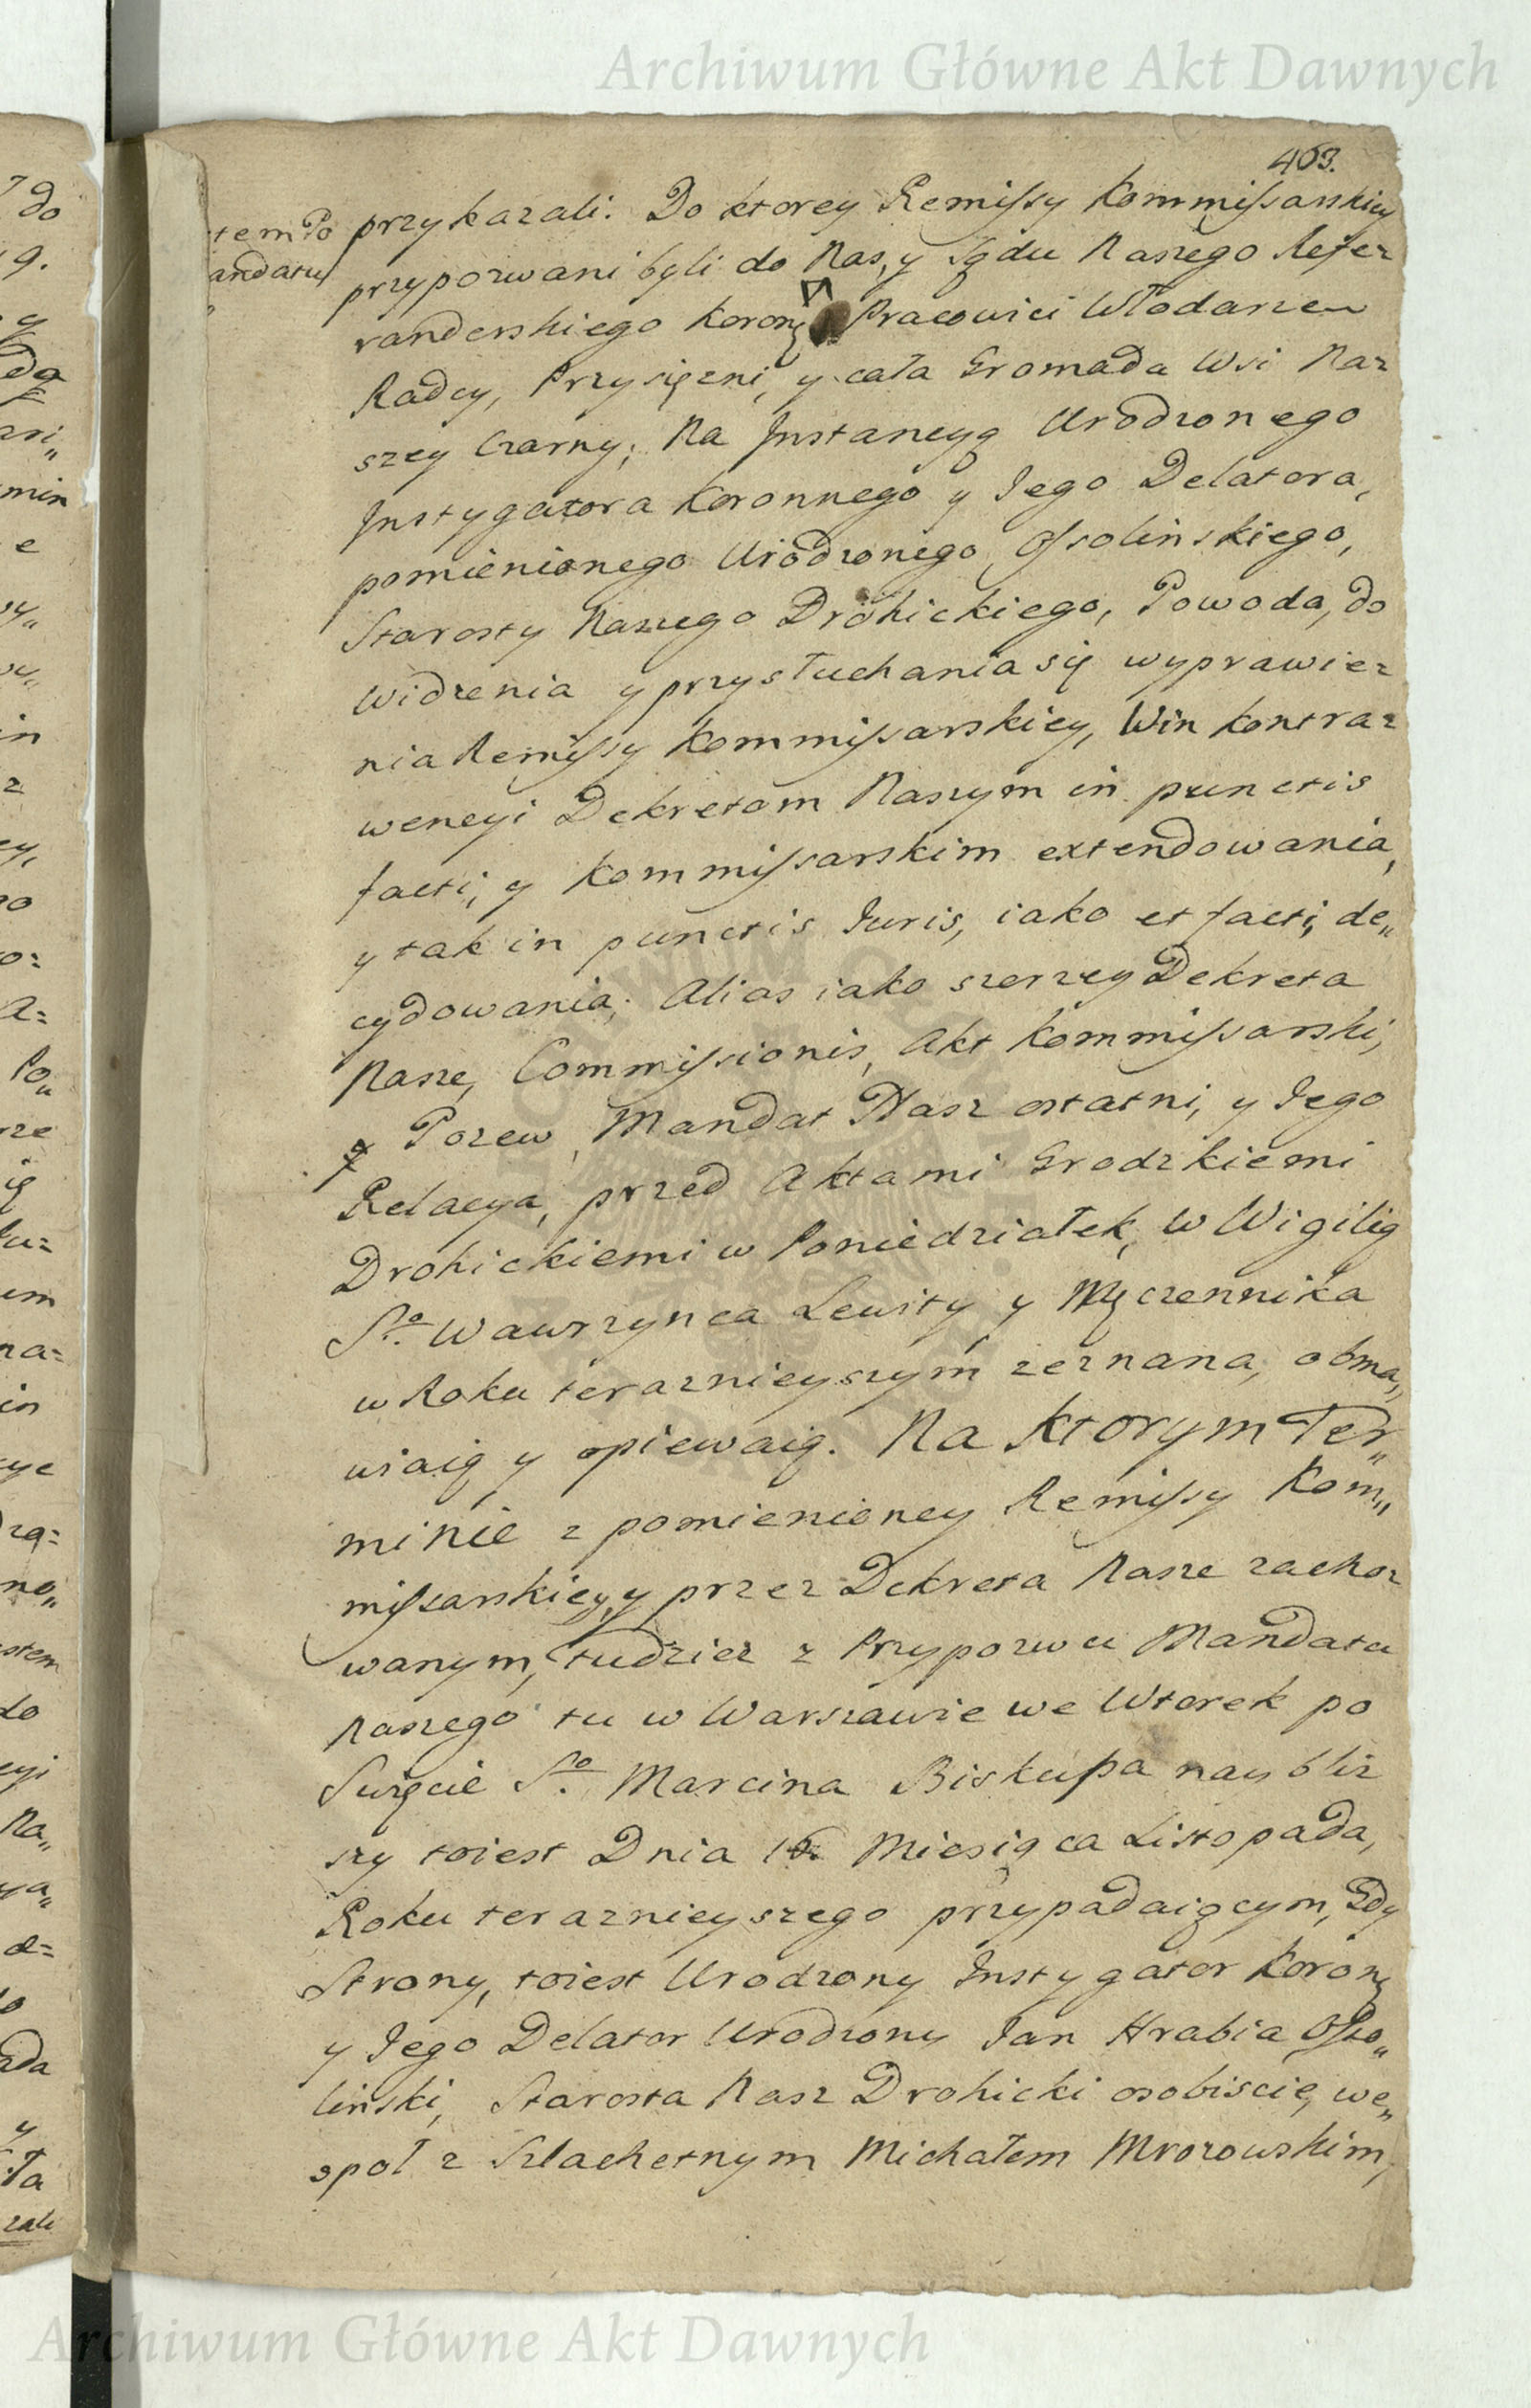 Archiwum Główne Akt Dawnych
403.
przykazali. Do ktorey Remissy Kommissarskiey
tem Po
andatu
przypozwani byli do Nas, y Sądu Naszego Refe=
randerskiego Koronn Pracowici Włodarze
Radcy, Przysięzni, y cała Gromada Wsi Na=
szey Czarny; Na Jnstancyą Urodzonego
Jnstygatora Koronnego y Jego Delatora,
pomienionego Urodzonego Ossolinskiego,
Starosty Naszego Drohickiego, Powoda, do
Widzenia y przysłuchania się wyprawie=
nia Remissy Kommissarskiey, Win kontra=
wencyi Dekretom Naszym in punctis
facti, y Kommissarskim extendowania,
y tak in punctis Juris, iako et facti, de„
cydowania; Alias iako szerzey Dekreta
Nasze, Commissionis, Akt Kommissarski,
y Pozew, Mandat Nasz ostatni, y Jego
Relacya, przed Aktami Grodzkiemi
Drohickiemi w Poniedziałek, w Wigilią
So. Wawrzynca Lewity y Męczennika
w Roku teraznieyszym zeznana, obma„
wiaią y opiewaią. Na Ktorym Ter„
minie z pomienioney Remissy Kom„
missarskiey, y przez Dekreta Nasze zacho=
wanym, tudziez z Przypozwu Mandatu
Naszego tu w Warszawie we Wtorek po
Swięcie So. Marcina Biskupa naybliz
szy toiest Dnia Miesiąca Listopada,
Roku teraznieyszego przypadaiącym, Gdy
Strony, toiest Urodzony Jnstygator Koronn
y Jego Delator Urodzony Jan Hrabia Osso„
linski, Starosta Nasz Drohicki osobiscie, we„
społ z Szlachetnym Michałem Mrozowskim,
Archiwum Główne Akt Dawnych